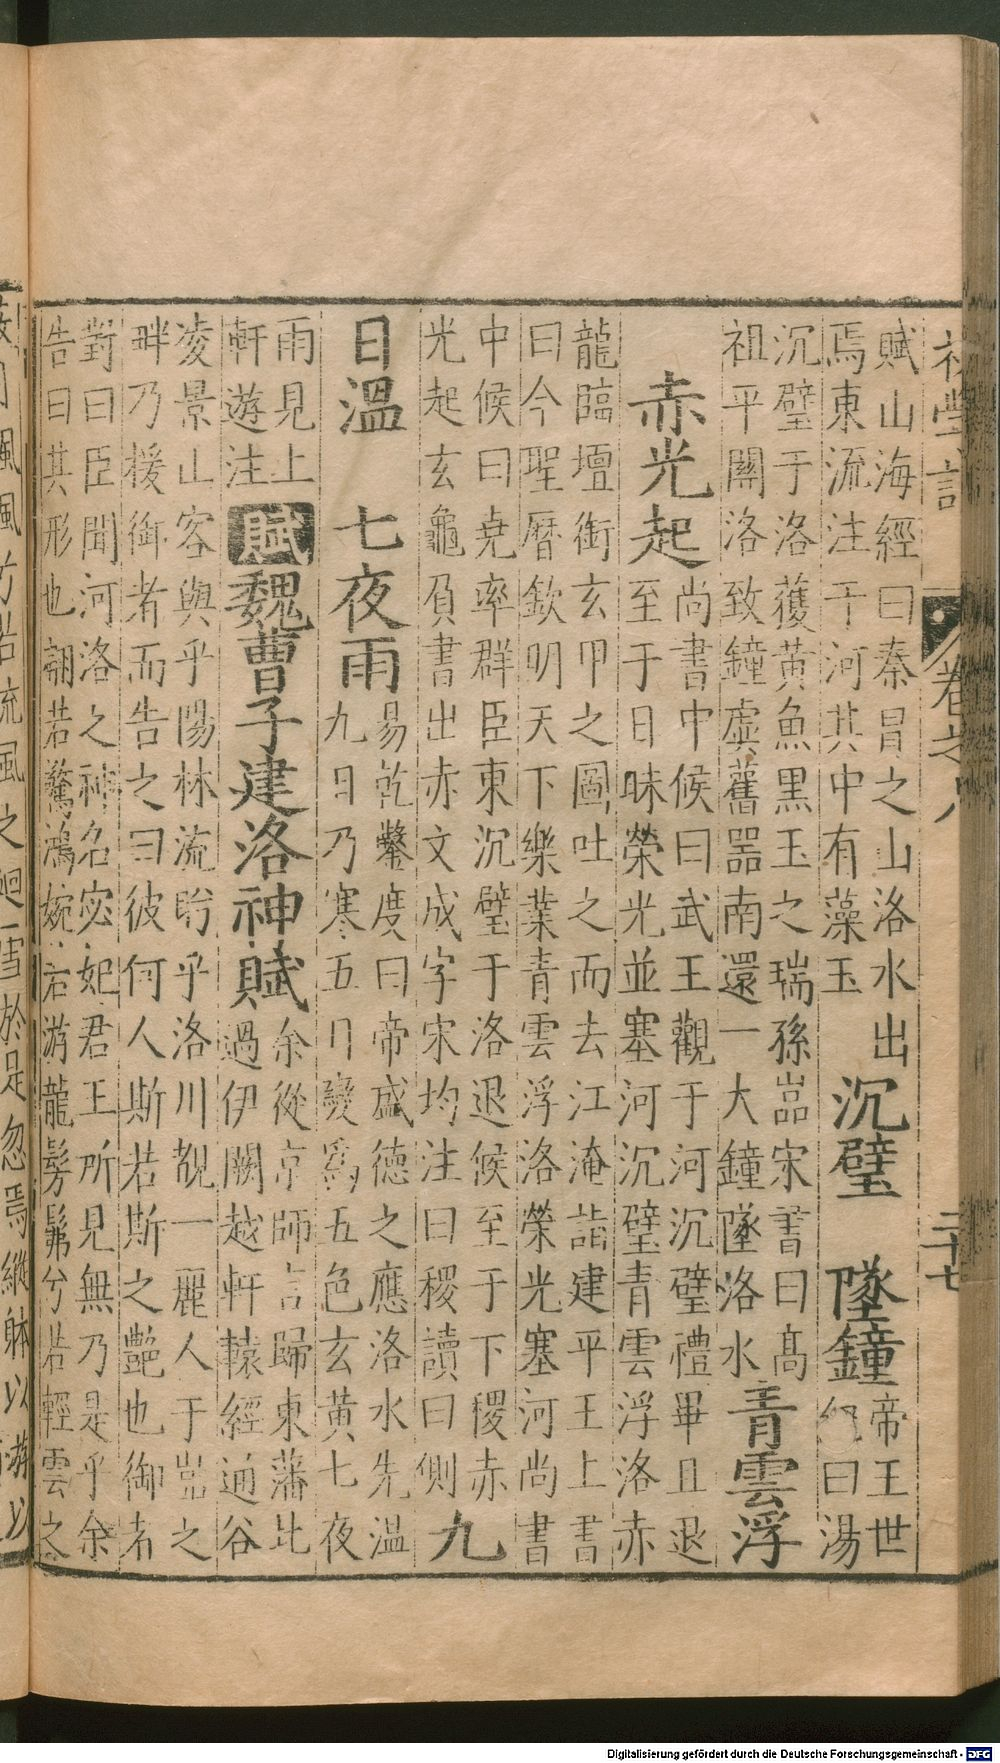 初學記 卷之八 二十七
賦山海經曰秦冒之山洛水出
焉東流注于河其中有藻玉
沉璧 墜鐘
帝王世
紀曰湯
沉璧于洛獲黃魚黑玉之瑞孫嵓宋書曰高
祖平關洛致鐘虡舊噐南還一大鐘墜洛水
青雲浮
赤光起
尚書中候曰武王觀于河沉璧禮畢且退
至于日昧榮光並塞河沉璧青雲浮洛赤
龍臨壇銜玄甲之圖吐之而去江淹詣建平王上書
曰今聖曆欽明天下樂業青雲浮洛榮光塞河尚書
中候曰堯率群臣東沉璧于洛退候至于下稷赤
光起玄龜負書出赤文成字宋均注曰稷讀曰側
九
日溫 七夜雨
易乾鑿度曰帝盛德之應洛水先溫
九日乃寒五日變爲五色玄黃七夜
雨見上
軒遊注
賦 魏曹子建洛神賦
余從京師言歸東藩北
過伊闕越軒轅經通谷
凌景山容與乎陽林流眄乎洛川覩一麗人于巖之
畔乃援御者而告之曰彼何人斯若斯之艷也御者
對曰臣聞河洛之神名宓妃君王所見無乃是乎余
告曰其形也翩若驚鴻婉若游龍髣髴兮若輕雲之
蔽月飄颻兮若流風之廻雪於是忽焉縱躰以游以
Digitalisierung gefördert durch die Deutsche Forschungsgemeinschaft - DFG